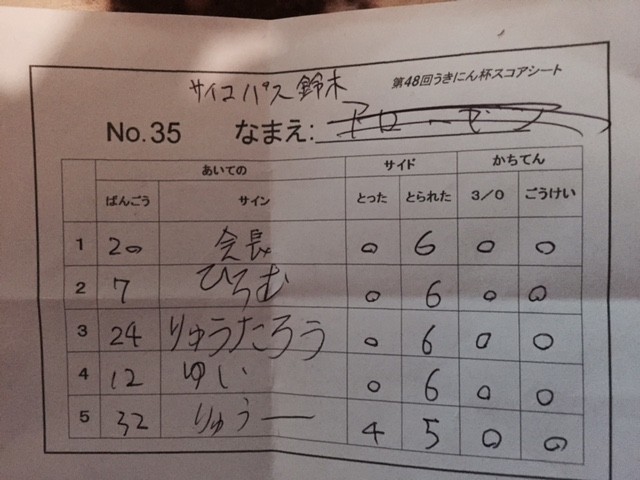 サイコパス鈴木
第48回うきにん杯スコアシート
No.35 なまえ:
あいての サイド かちてん
ばんごう サイン とった とられた 3/0 ごうけい
1 20 会長 0 6 0 0
2 7 ひろむ 0 6 0 0
3 24 りゅうたろう 0 6 0 0
4 12 ゆい 0 6 0 0
5 32 りゅうー 4 5 0 0